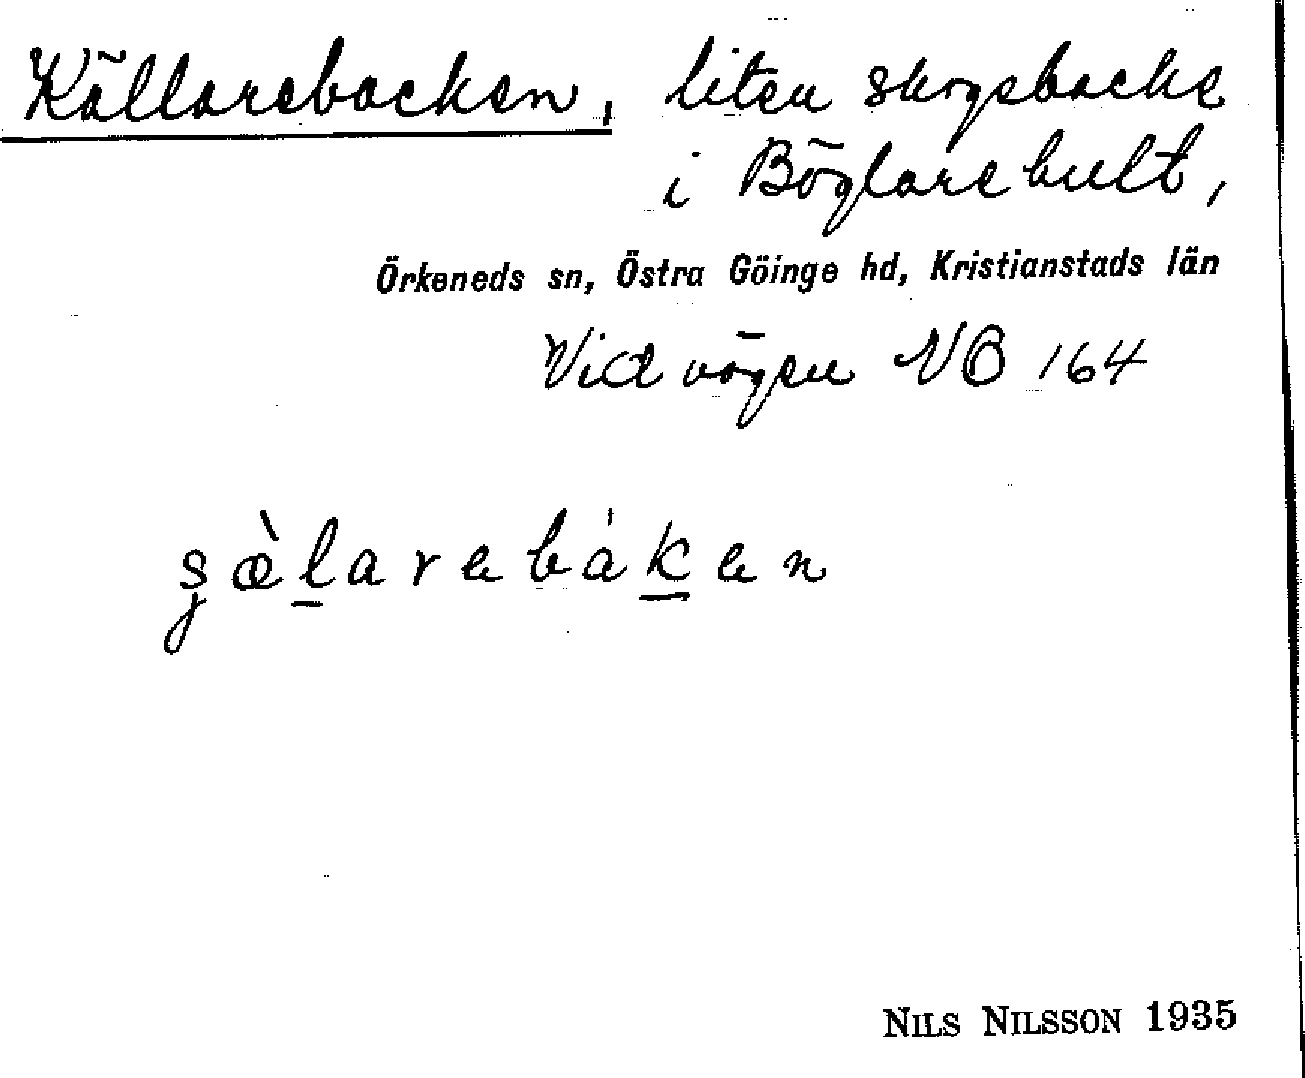 Källarebacken, liten skogsbacke
i Böglarehult,
Örkeneds sn, Östra Göinge hd, Kristianstads län
Vid vägen NO 164
s̡æ̀l̲arebák̲en
NILS NILSSON 1935